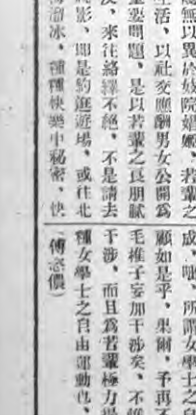 無以異於妓院娼嫽、若輩之
生活、以社交應酬男女公開爲
重要問題、是以若輩之良朋膩
友、來往絡繹不絕、不是請去
電影、即是約逛遊塲、或往北
溜冰、種種快樂中秘密、快
成、嗟、所謂女學士之
願如是乎、果爾、予再不
毛推子妄加干涉矣、不惟
干涉、而且爲若輩極力
種女學士之自由運動也、
（傅忞儂）